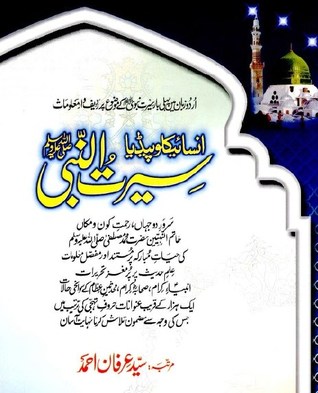 اردو زبان میں پہلی بار سیرت نبوی ﷺ کے موضوع پر ردیف وار معلومات
انسائیکلوپیڈیا
سیرت النبی ﷺ
سرورِ دو جہاں، رحمتِ کون و مکاں
خاتم النبیین حضرت محمد مصطفیٰ صلی اللہ علیہ وسلم
کی حیاتِ مبارکہ پر مستند اور مفصل معلومات
علمِ حدیث پر پُر مغز تحریرات
انبیاء کرام، صحابہ کرام، محدثین عظام کے سوانحی حالات
ایک ہزار کے قریب عنوانات حروفِ تہجی کی ترتیب میں
جس کی وجہ سے مضمون تلاش کرنا نہایت آسان
مرتبہ: سید عرفان احمد